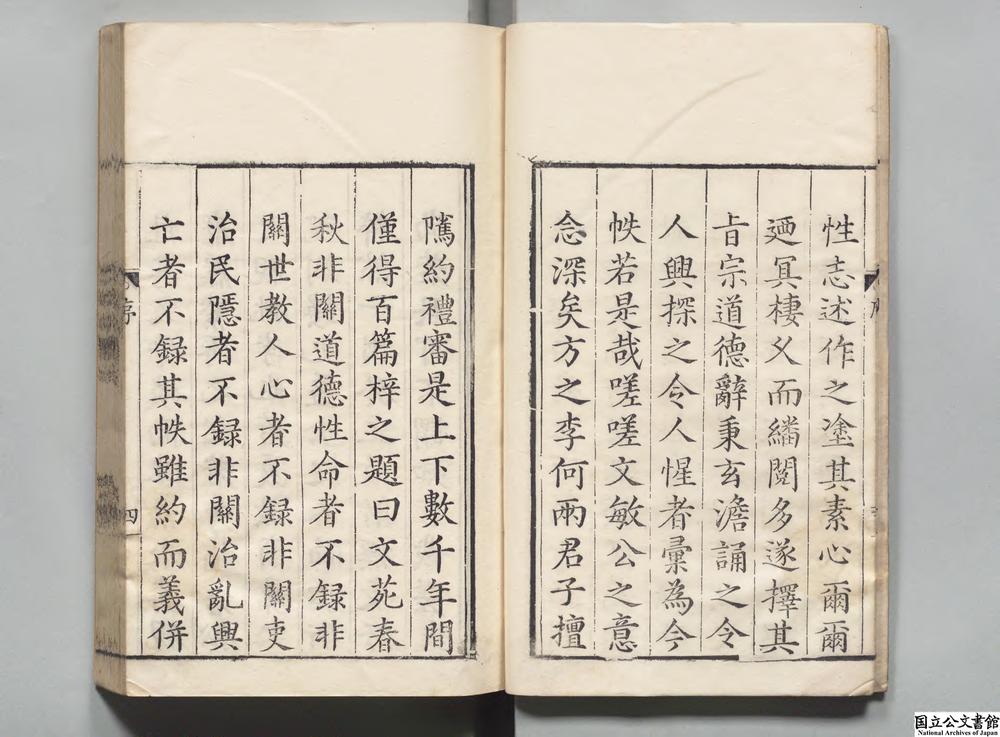 性志述作之塗其素心爾爾
廼冥棲乂而繙閲多遂擇其
㫖宗道德辭秉玄澹誦之令
人興探之令人惺者彚為今
帙若是哉嗟嗟文敏公之意
念深矣方之李何兩君子擅
騰約禮審是上下數千年間
僅得百篇梓之題曰文苑春
秋非關道德性命者不録非
關世教人心者不録非關吏
治民隱者不録非關治亂興
亡者不録其帙雖約而義併
序
四
国立公文書館
National Archives of Japan